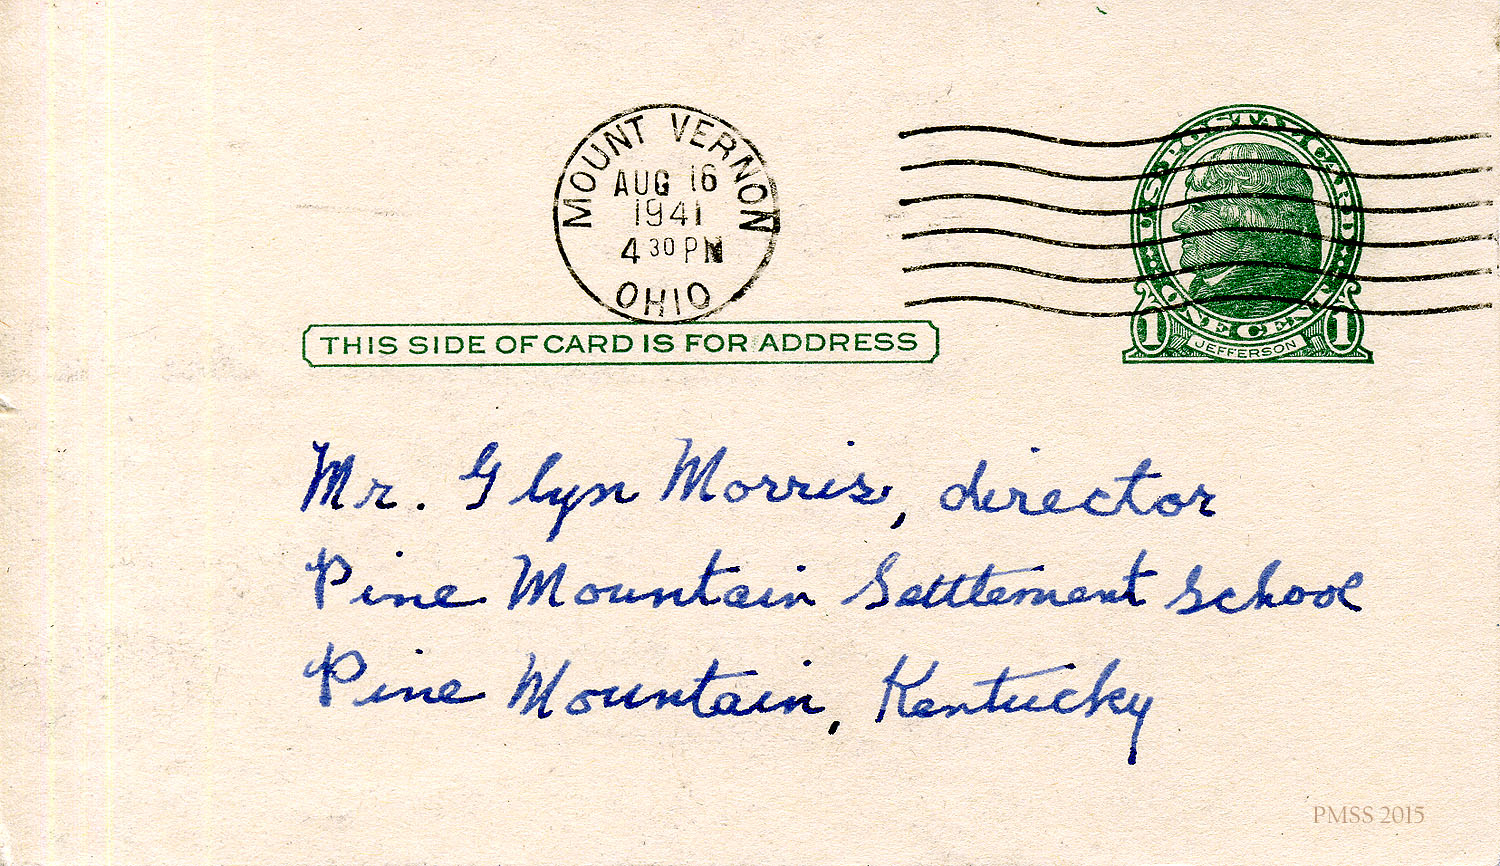 MOUNT VERNON
AUG 16
1941
4 30 PM
OHIO
U.S. POSTAL CARD
ONE CENT
1 JEFFERSON 1
THIS SIDE OF CARD IS FOR ADDRESS
Mr. Glyn Morris, director
Pine Mountain Settlement School
Pine Mountain, Kentucky
PMSS 2015